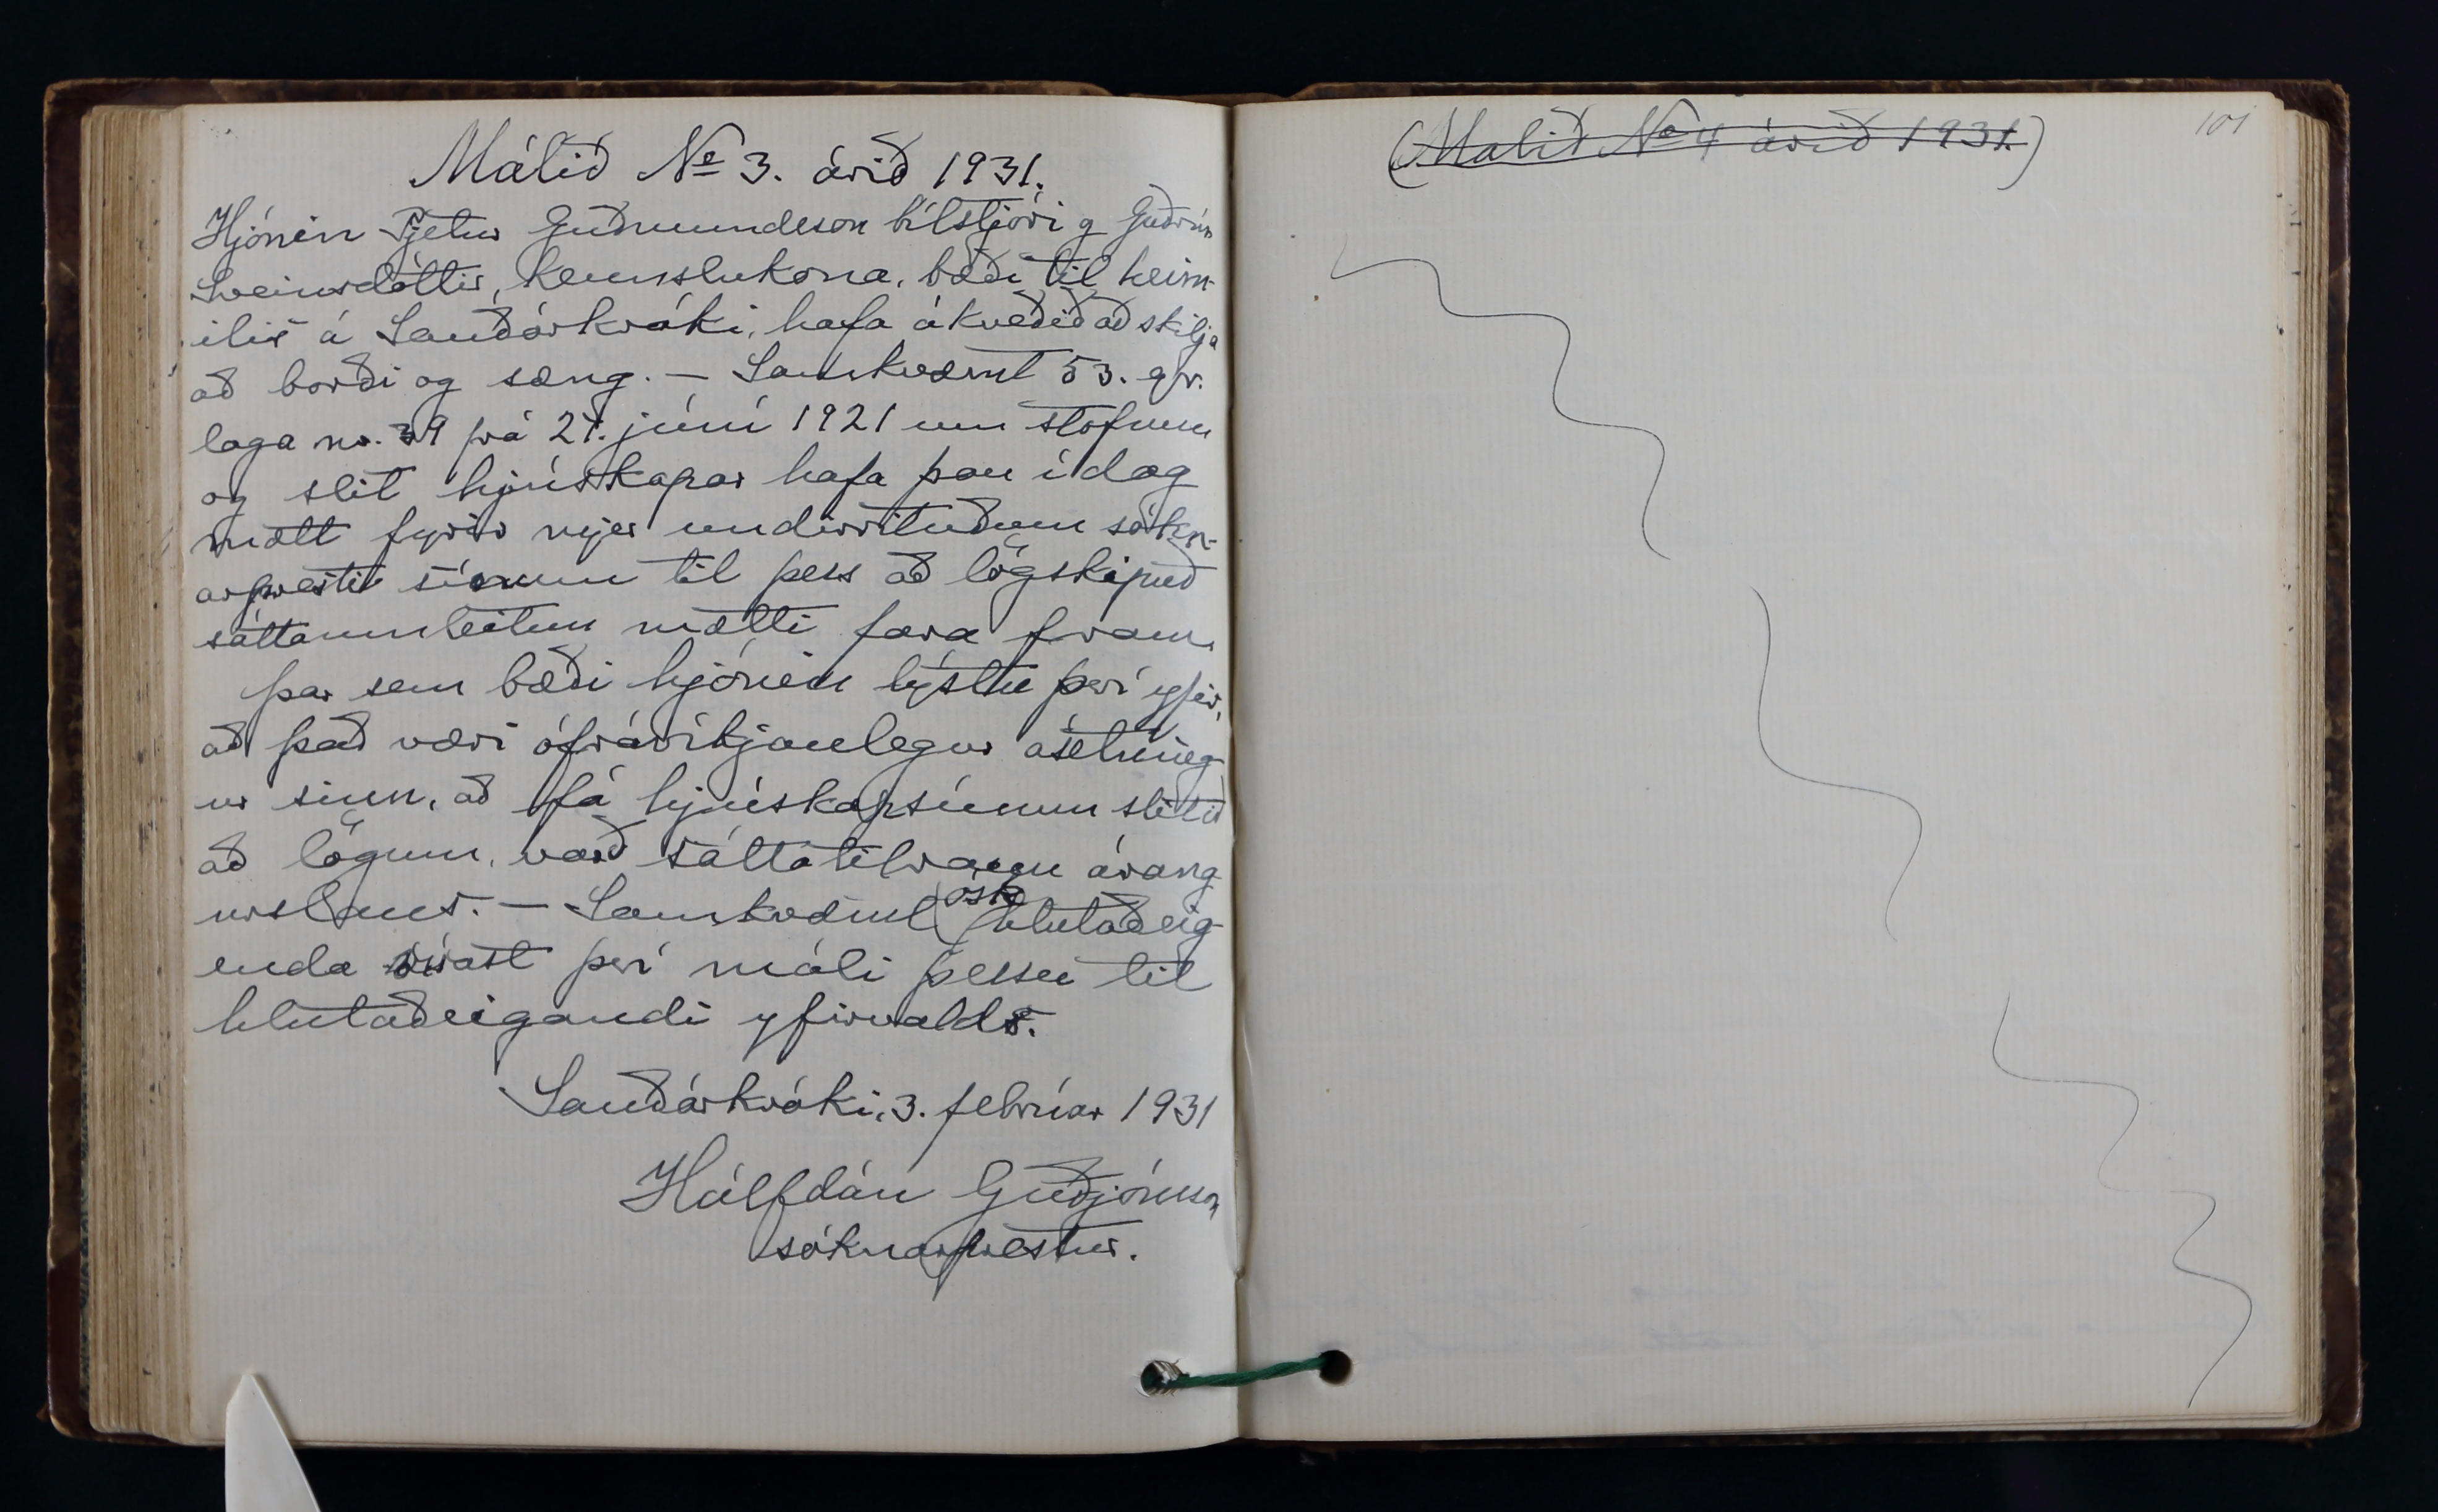 Málið № 3. árið 1931.
Hjónin Pjetur Guðmundsson bílstjóri og Guðrún
Sveinsdóttir, kennslukona, bæði til heim-
ilis á Sauðárkróki, hafa ákveðið að skilja
að borði og sæng. — Samkvæmt 53. gr.
laga nr. 39 frá 27. júní 1921 um stofnun
og slit hjúskapar hafa þau í dag
mætt fyrir mjer undirrituðum sókn-
arpresti sínum til þess að lögskipuð
sáttaumleitun mætti fara fram.
Þar sem bæði hjónin lýstu því yfir,
að það væri ófrávíkjanlegur ásetning
ur sinn, að fá hjúskap sínum slitið
að lögum, varð sáttatilraun árang
urslaus. — Samkvæmt ósk hlutaðeig-
enda vísast því máli þessu til
hlutaðeigandi yfirvalds.
Sauðárkróki, 3. febrúar 1931
Hálfdán Guðjónsson
sóknarprestur.
(Malið № 4 árið 1931.)
101